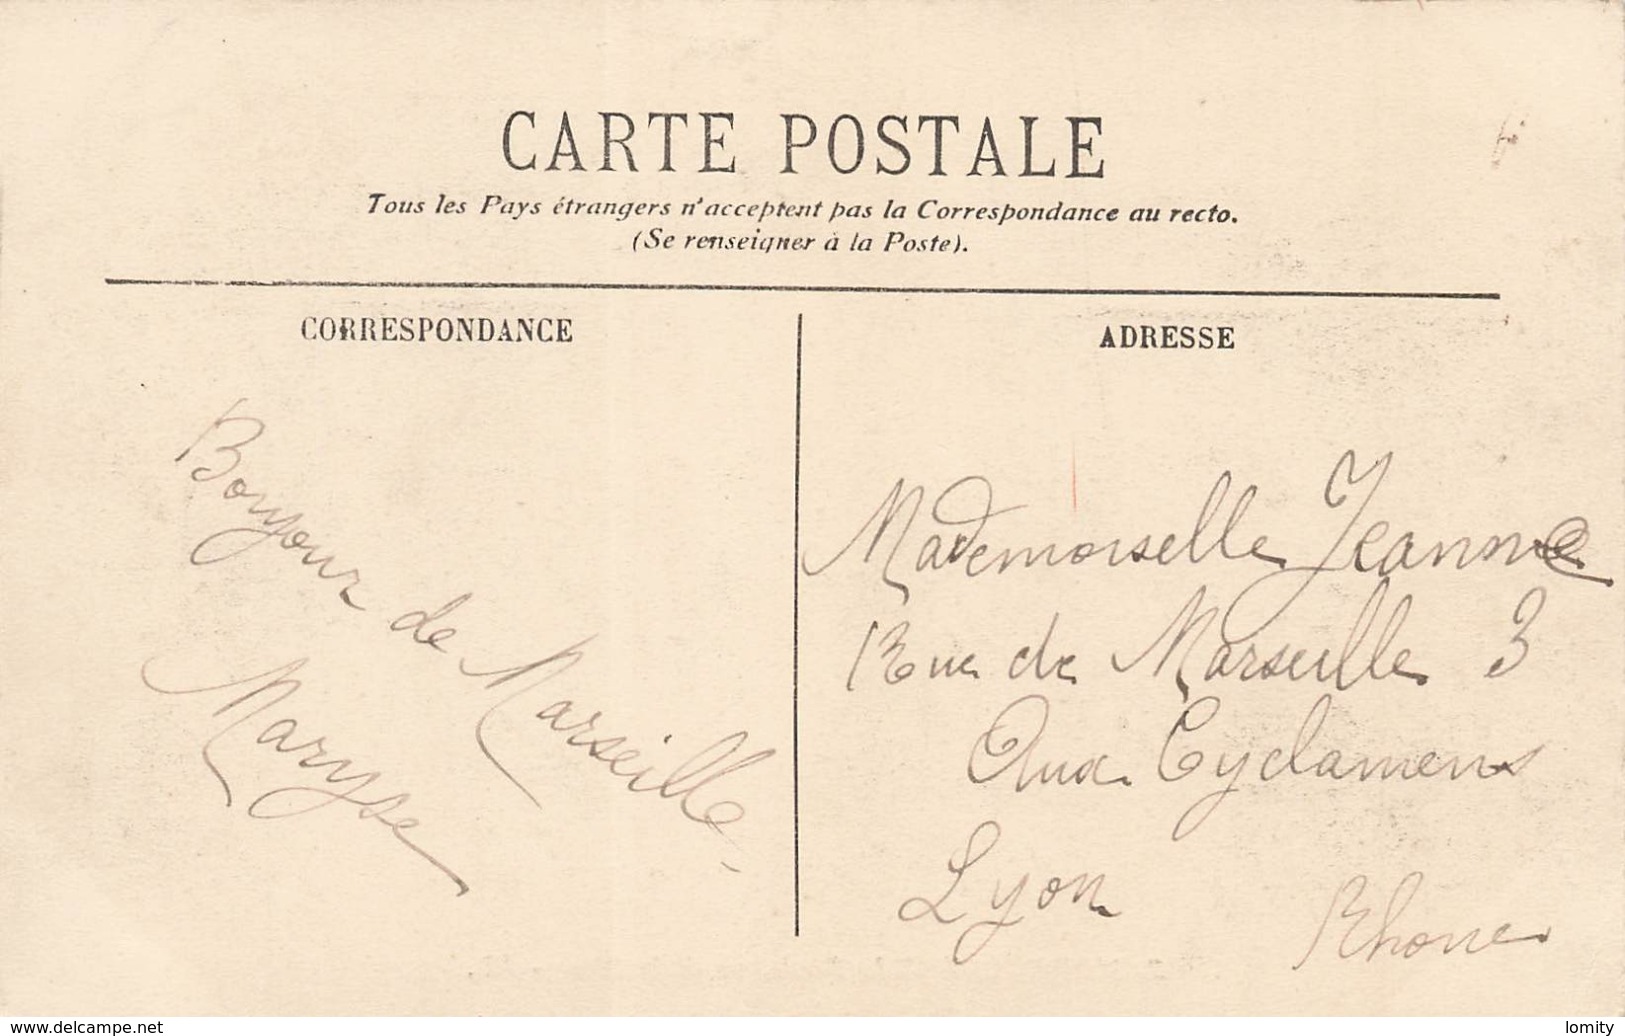 CARTE POSTALE
Tous les Pays étrangers n'acceptent pas la Correspondance au recto.
(Se renseigner à la Poste).
CORRESPONDANCE
Bonjour de Marseille
Maryse
ADRESSE
Mademoiselle Jeanne
Rue de Marseille 3
Aux Cyclamens
Lyon
Rhone
www.delcampe.net
lomity